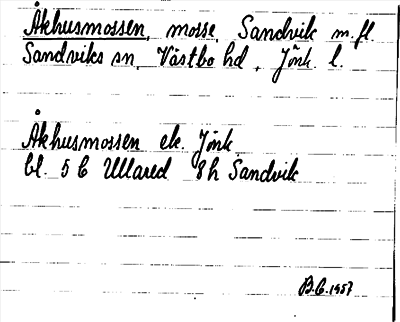 Åkhusmossen, mosse, Sandvik m.fl.
Sandviks sn, Västbo hd, Jönk. l.
Åkhusmossen ek. Jönk.
bl. 5 C Ullared 8 h Sandvik
B.C. 1957